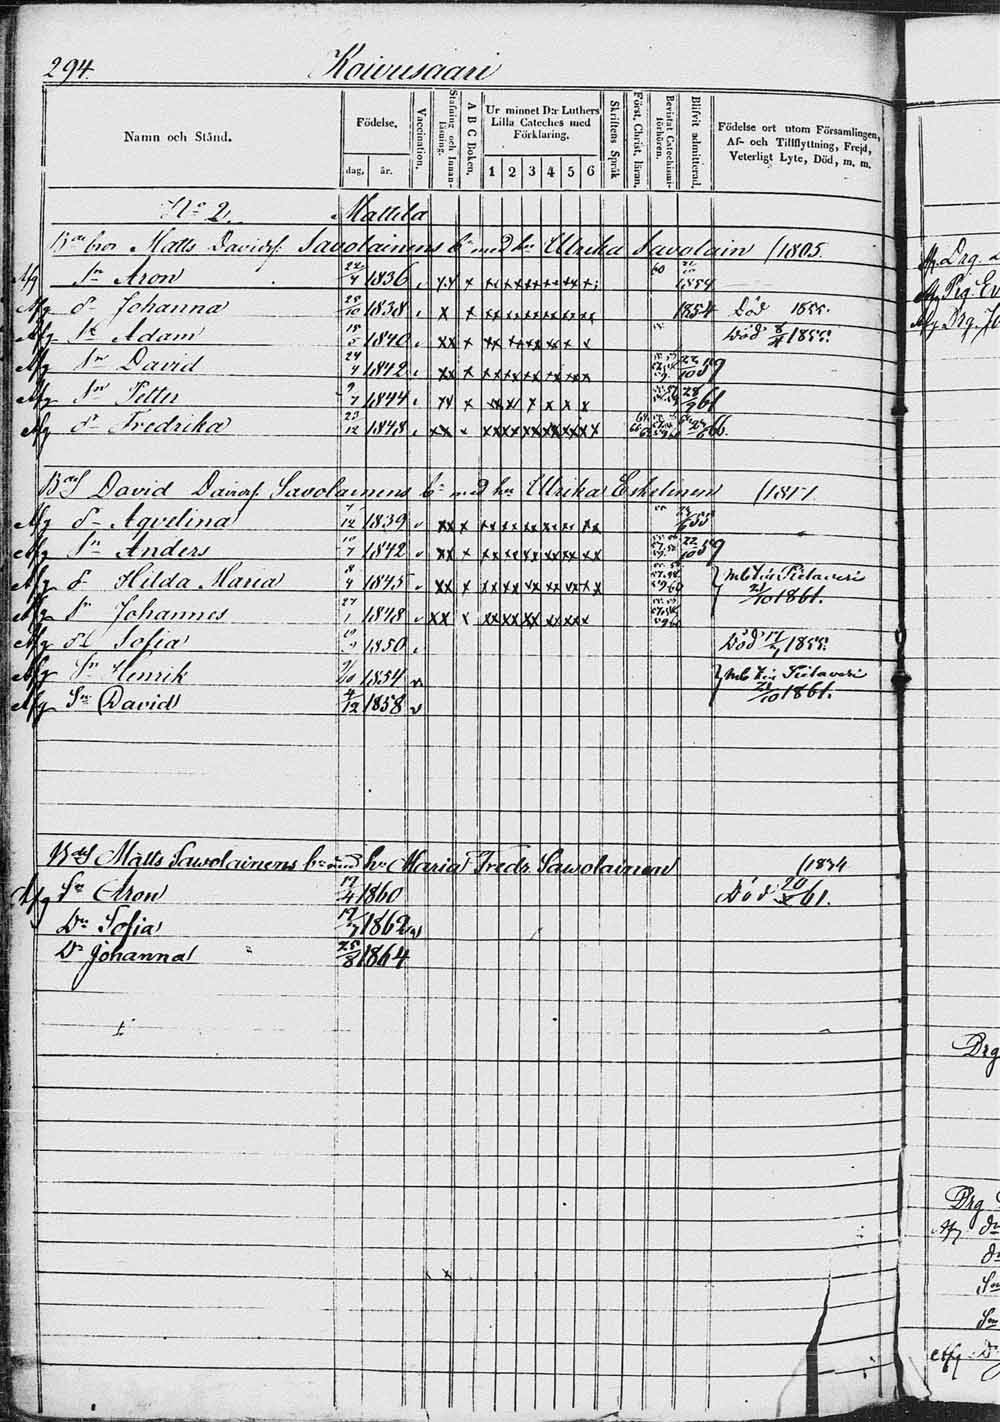 294.
Koivusaari
Namn och Stånd.
Födelse,
dag,
år.
Vaccination.
Stafning och Innan-läsning.
A B C Boken,
Ur minnet D:r Luthers Lilla Cateches med Förklaring.
1 2 3 4 5 6
Skriftens Språk
Först. Christ. läran.
Bevistat Catechismi-förhören.
Blifvit admitterad.
Födelse ort utom Församlingen, Af- och Tillflyttning, Frejd, Veterligt Lyte, Död, m. m.
No 2. Mattila
Bdes bror Matts Davidsf. Savolainens bn med hu Ulrika Savolain (1805.
Afg Sn Aron 22/4 1836 60 1854
Afg d Johanna 28/10 1838 1854 Död 1855.
Afg Sn Adam 18/5 1840 Död 8/4 1855.
Afg Sn David 24/4 1842 22/10 59
Afg Sn Petter 9/7 1844 28/9 61
Afg d Fredrika 23/12 1848 66
Bdes David Davidsf. Savolainens bn med hu Ulrika Eskelinen (1817.
Afg d Aqvelina 7/12 1839 55
Afg Sn Anders 10/7 1842 22/10 59
Afg d Hilda Maria 8/4 1845 mb till Pielaveri 21/10 1861.
Afg Sn Johannes 27/1 1848
Afg d Sofia 19 1850 Död 17 1855.
Afg Sn Henrik /10 1854 mb till Pielaveri 21/10 1861.
Afg Sn David 4/12 1858
Bdes Matts Sawolainens bn med hu Maria Fredr. Sawolainen (1834
Afg Sn Aron 19/4 1860 Död 20 61.
Dr Sofia 19/7 1862
Dr Johanna 25/8 1864
Drg.
Drg
Afg
Sn
Sn
Afg